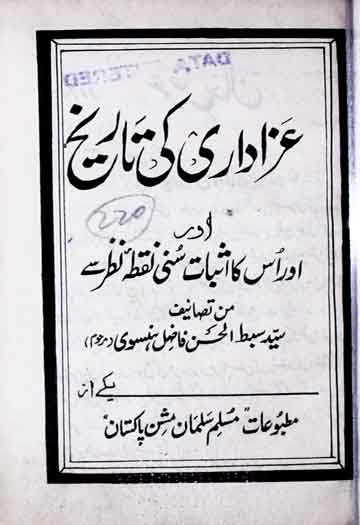 DATA ENTERED
عزاداری کی تاریخ
220
اور
اور اُس کا اثبات سُنی نقطۂ نظر سے
من تصانیف
سیّد سبط الحسن فاضل ہنسوی (مرحوم)
یکے از
مطبوعات "مُسلم سلمان مشن پاکستان"